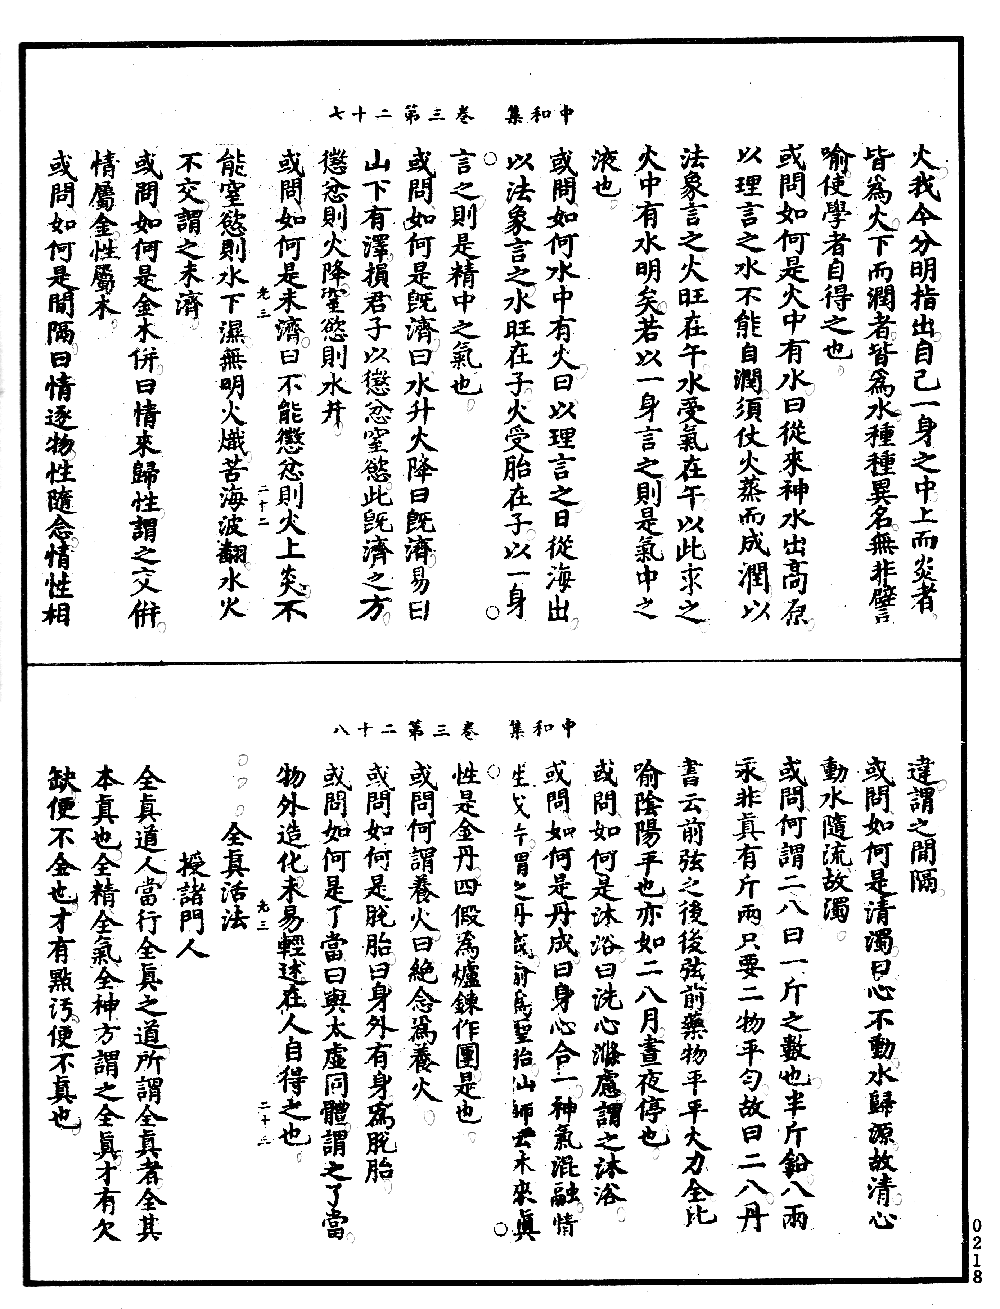 中和集　卷三第二十七
火我今分明指出自己一身之中上而炎者
皆爲火下而潤者皆爲水種種異名無非譬
喻使學者自得之也
或問如何是火中有水曰從來神水出高原
以理言之水不能自潤須仗火蒸而成潤以
法象言之火旺在午水受氣在午以此求之
火中有水明矣若以一身言之則是氣中之
液也
或問如何水中有火曰以理言之日從海出
以法象言之水旺在子火受胎在子以一身
言之則是精中之氣也
或問如何是既濟曰水升火降曰既濟易曰
山下有澤損君子以懲忿窒慾此既濟之方
懲忿則火降窒慾則水升
或問如何是未濟曰不能懲忿則火上炎不
光三　二十二
能窒慾則水下濕無明火熾苦海波翻水火
不交謂之未濟
或問如何是金木併曰情來歸性謂之交併
情屬金性屬木
或問如何是間隔曰情逐物性隨念情性相
中和集　卷三第二十八
違謂之間隔
或問如何是清濁曰心不動水歸源故清心
動水隨流故濁
或問何謂二八曰一斤之數也半斤鉛八兩
汞非眞有斤兩只要二物平勻故曰二八丹
書云前弦之後後弦前藥物平平火力全比
喻陰陽平也亦如二八月晝夜停也
或問如何是沐浴曰洗心滌慮謂之沐浴
或問如何是丹成曰身心合一神氣混融情
性成片謂之丹成喻爲聖胎仙師云本來眞
性是金丹四假爲爐鍊作團是也
或問何謂養火曰絶念爲養火
或問如何是脫胎曰身外有身爲脫胎
或問如何是了當曰與太虛同體謂之了當
物外造化未易輕述在人自得之也
光三　二十三
全眞活法
授諸門人
全眞道人當行全眞之道所謂全眞者全其
本眞也全精全氣全神方謂之全眞才有欠
缺便不全也才有點汚便不眞也
0218